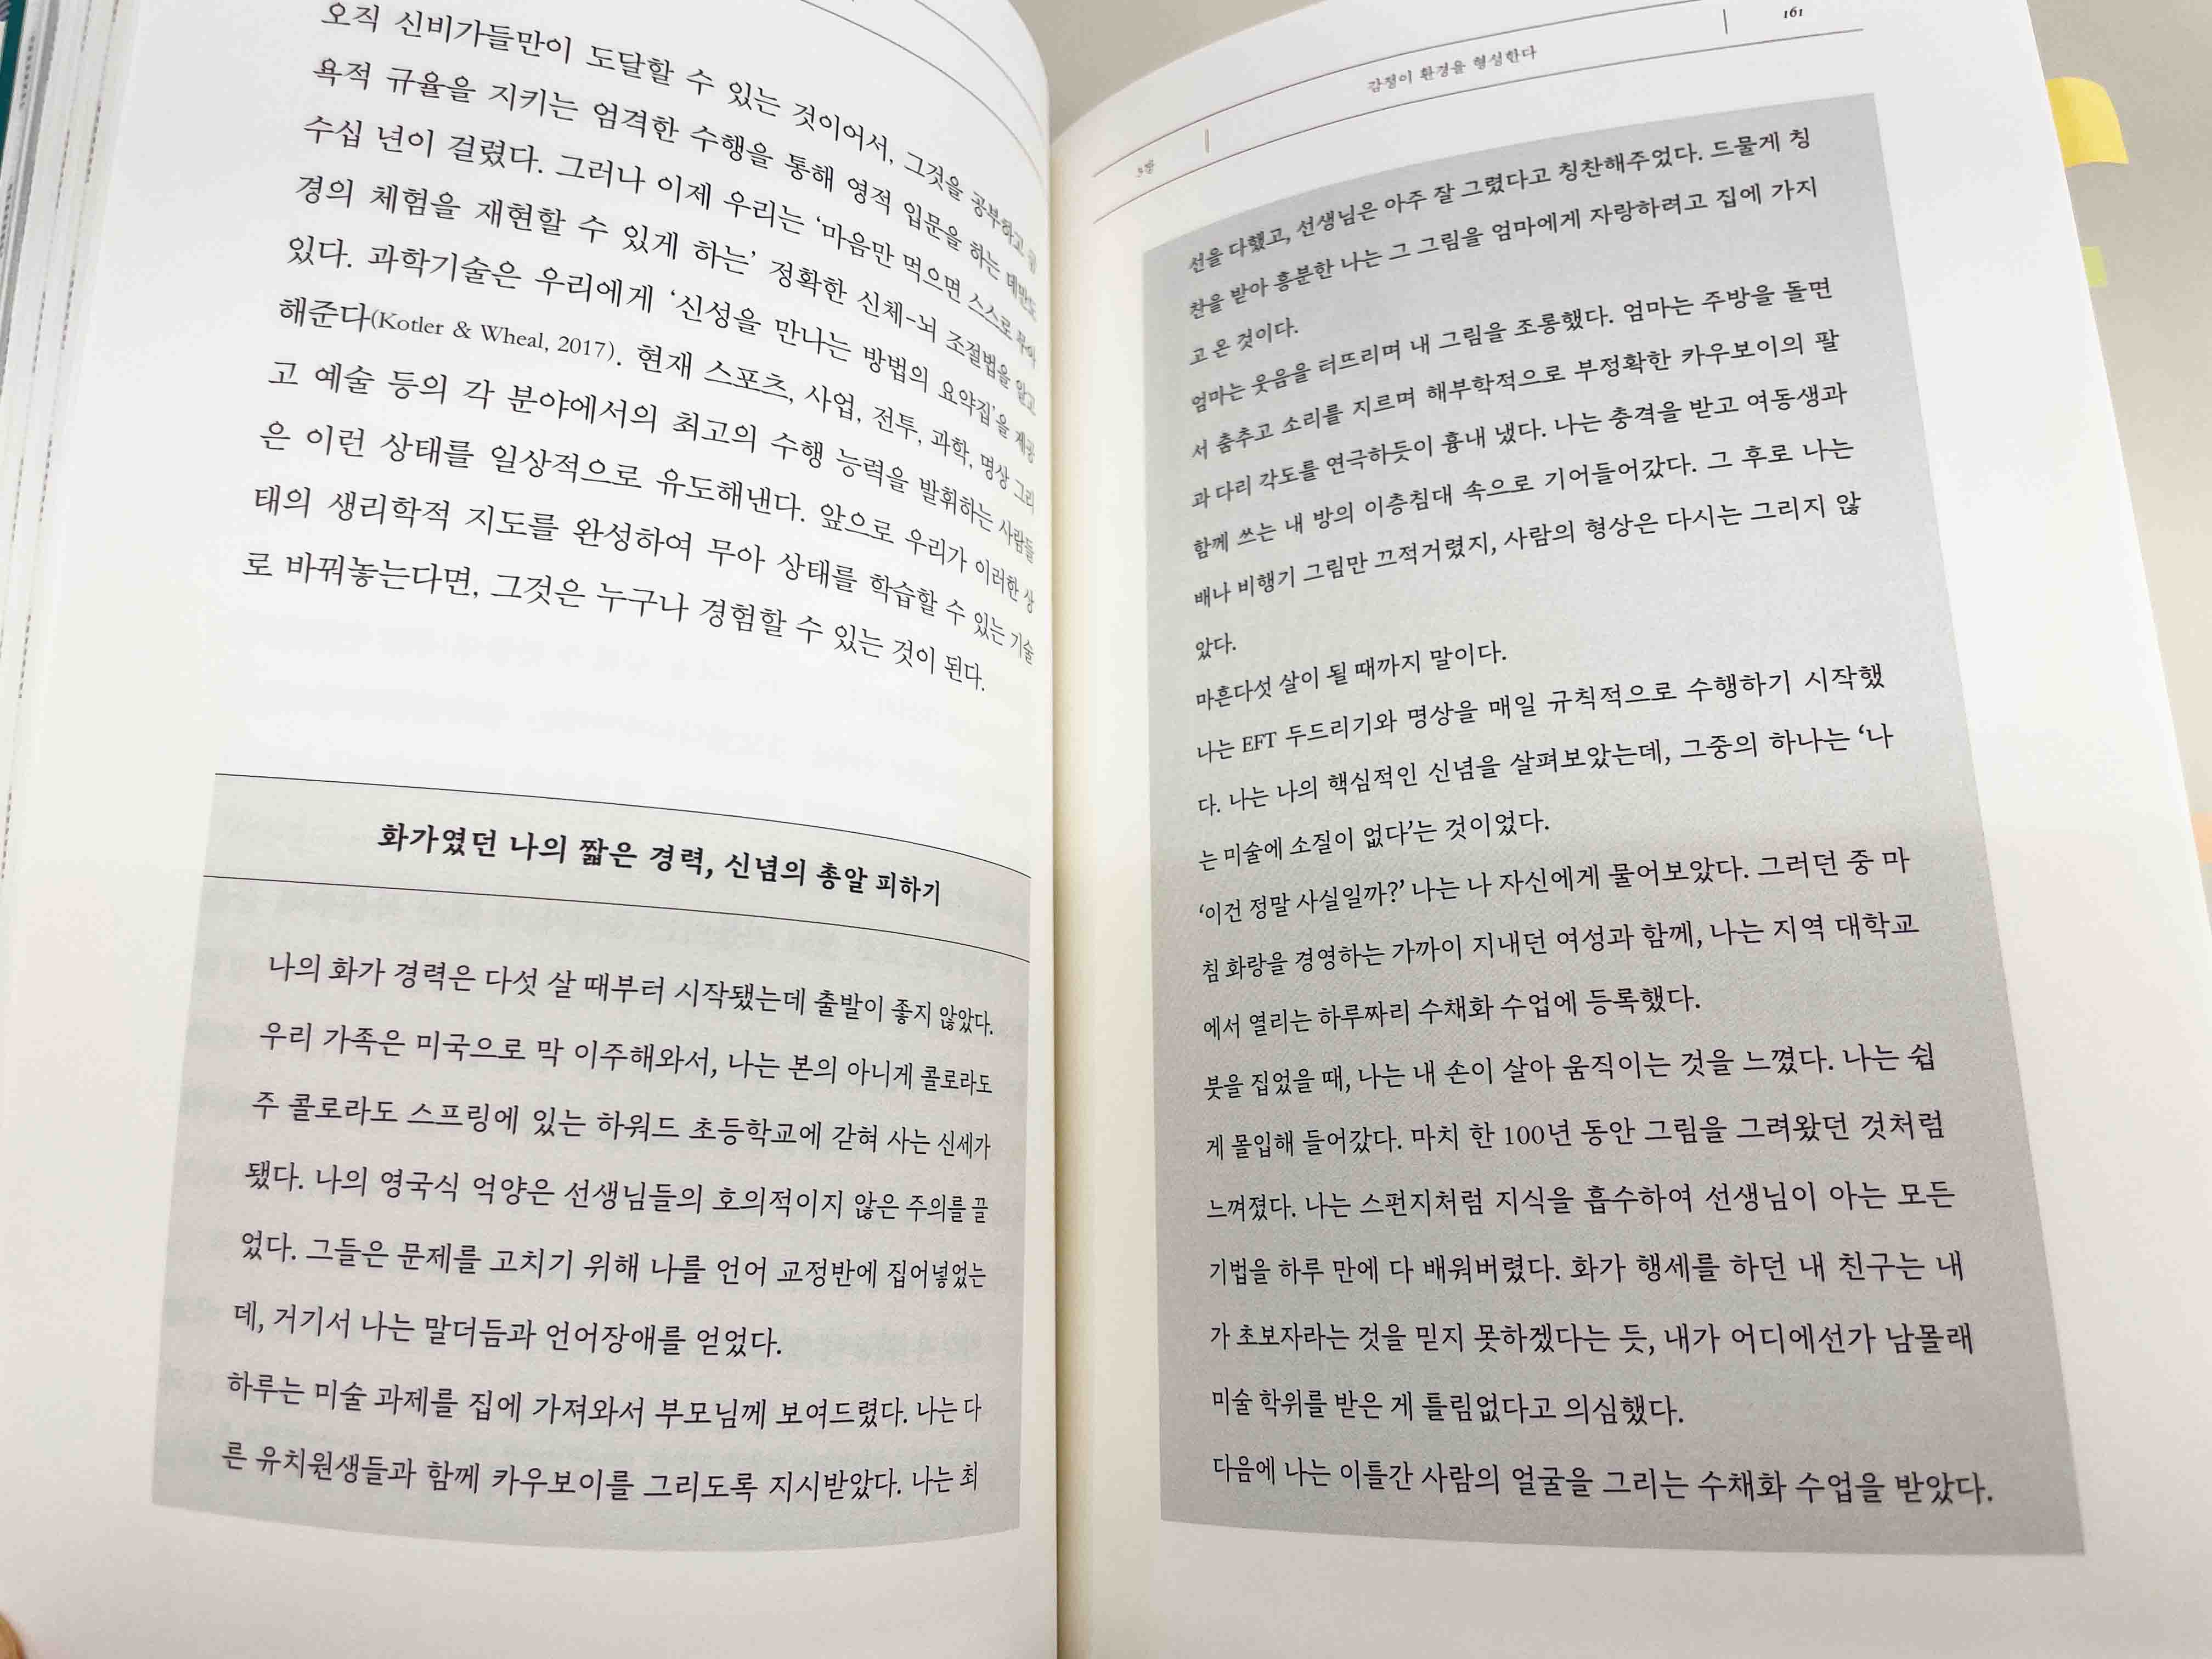 오직 신비가들만이 도달할 수 있는 것이어서, 그것을 공부하고 금
욕적 규율을 지키는 엄격한 수행을 통해 영적 입문을 하는 데만도
수십 년이 걸렸다. 그러나 이제 우리는 ‘마음만 먹으면 스스로 무아
경의 체험을 재현할 수 있게 하는’ 정확한 신체-뇌 조절법을 알고
있다. 과학기술은 우리에게 ‘신성을 만나는 방법의 요약집’을 제공
해준다(Kotler & Wheal, 2017). 현재 스포츠, 사업, 전투, 과학, 명상 그리
고 예술 등의 각 분야에서의 최고의 수행 능력을 발휘하는 사람들
은 이런 상태를 일상적으로 유도해낸다. 앞으로 우리가 이러한 상
태의 생리학적 지도를 완성하여 무아 상태를 학습할 수 있는 기술
로 바꿔놓는다면, 그것은 누구나 경험할 수 있는 것이 된다.
화가였던 나의 짧은 경력, 신념의 총알 피하기
나의 화가 경력은 다섯 살 때부터 시작됐는데 출발이 좋지 않았다.
우리 가족은 미국으로 막 이주해와서, 나는 본의 아니게 콜로라도
주 콜로라도 스프링에 있는 하워드 초등학교에 갇혀 사는 신세가
됐다. 나의 영국식 억양은 선생님들의 호의적이지 않은 주의를 끌
었다. 그들은 문제를 고치기 위해 나를 언어 교정반에 집어넣었는
데, 거기서 나는 말더듬과 언어장애를 얻었다.
하루는 미술 과제를 집에 가져와서 부모님께 보여드렸다. 나는 다
른 유치원생들과 함께 카우보이를 그리도록 지시받았다. 나는 최
감정이 환경을 형성한다
161
선을 다했고, 선생님은 아주 잘 그렸다고 칭찬해주었다. 드물게 칭
찬을 받아 흥분한 나는 그 그림을 엄마에게 자랑하려고 집에 가지
고 온 것이다.
엄마는 웃음을 터뜨리며 내 그림을 조롱했다. 엄마는 주방을 돌면
서 춤추고 소리를 지르며 해부학적으로 부정확한 카우보이의 팔
과 다리 각도를 연극하듯이 흉내 냈다. 나는 충격을 받고 여동생과
함께 쓰는 내 방의 이층침대 속으로 기어들어갔다. 그 후로 나는
배나 비행기 그림만 끄적거렸지, 사람의 형상은 다시는 그리지 않
았다.
마흔다섯 살이 될 때까지 말이다.
나는 EFT 두드리기와 명상을 매일 규칙적으로 수행하기 시작했
다. 나는 나의 핵심적인 신념을 살펴보았는데, 그중의 하나는 ‘나
는 미술에 소질이 없다’는 것이었다.
‘이건 정말 사실일까?’ 나는 나 자신에게 물어보았다. 그러던 중 마
침 화랑을 경영하는 가까이 지내던 여성과 함께, 나는 지역 대학교
에서 열리는 하루짜리 수채화 수업에 등록했다.
붓을 집었을 때, 나는 내 손이 살아 움직이는 것을 느꼈다. 나는 쉽
게 몰입해 들어갔다. 마치 한 100년 동안 그림을 그려왔던 것처럼
느껴졌다. 나는 스펀지처럼 지식을 흡수하여 선생님이 아는 모든
기법을 하루 만에 다 배워버렸다. 화가 행세를 하던 내 친구는 내
가 초보자라는 것을 믿지 못하겠다는 듯, 내가 어디에선가 남몰래
미술 학위를 받은 게 틀림없다고 의심했다.
다음에 나는 이틀간 사람의 얼굴을 그리는 수채화 수업을 받았다.